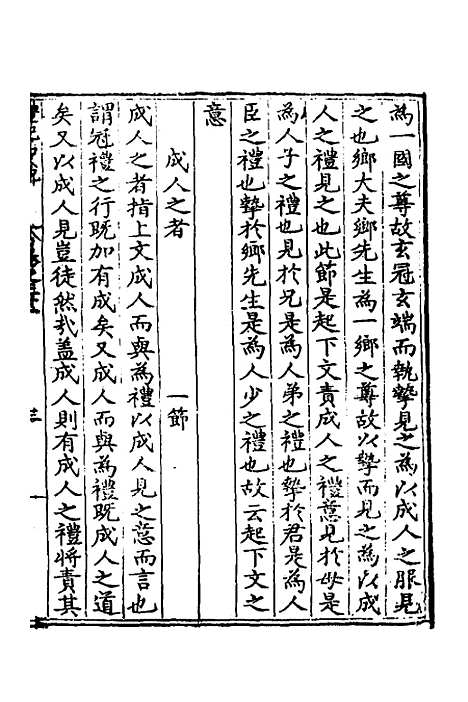 為一國之尊故玄冠玄端而執摯見之為以成人之服見
之也鄉大夫鄉先生為一鄉之尊故以摯而見之為以成
人之禮見之也此節是起下文責成人之禮意見於母是
為人子之禮也見於兄是為人弟之禮也摯於君是為人
臣之禮也摯於鄉先生是為人少之禮也故云起下文之
意
成人之者 一節
成人之者指上文成人而與為禮以成人見之意而言也
謂冠禮之行既加有成矣又成人而與為禮既成人之道
矣又以成人見豈徒然哉盖成人則有成人之禮將責其
三